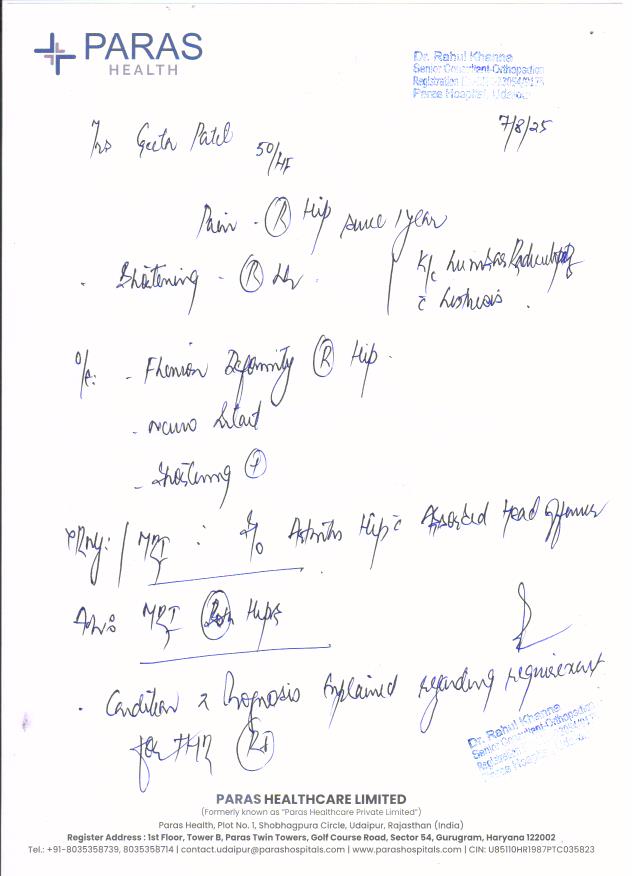 PARAS
HEALTH
Dr. Rahul Khanna
Senior Consultant-Orthopaedics
Registration
Paras Hospital, Udaipur
7/8/25
Mrs Geeta Patel
50/F
Pain - (R) Hip since 1 year
Shortening - (R)
K/c Lumbar Radiculopathy
c̄ Listhesis.
O/E: - Flexion Deformity (R) Hip.
- neuro intact
- Shortening (+)
XRay: / MRI : Arthritis Hip c̄ Head
Adv: MRI (Both) Hips
. Condition & Prognosis Explained regarding requirement
for THR (Rt)
Dr. Rahul Khanna
Senior Consultant-Orthopaedics
Registration
Paras Hospital, Udaipur
PARAS HEALTHCARE LIMITED
(Formerly known as “Paras Healthcare Private Limited”)
Paras Health, Plot No. 1, Shobhagpura Circle, Udaipur, Rajasthan (India)
Register Address : 1st Floor, Tower B, Paras Twin Towers, Golf Course Road, Sector 54, Gurugram, Haryana 122002
Tel.: +91-8035358739, 8035358714 | contact.udaipur@parashospitals.com | www.parashospitals.com | CIN: U85110HR1987PTC035823